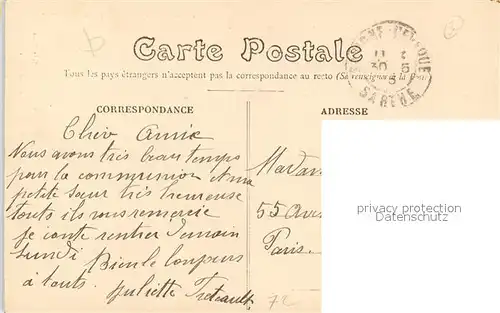 b
Carte Postale
Tous les pays étrangers n'acceptent pas la correspondance au recto (Se renseigner à la
CORRESPONDANCE
ADRESSE
SARTHE
Chère Anna
Nous avons très beau temps
pour la communion et ma
petite sœur très heureuse
touts ils vous remercie
je conte rentrer demain
lundi Bien le bonjours
à touts.
Juliette
Madam
55 Ave
Paris.
72
privacy protection
Datenschutz